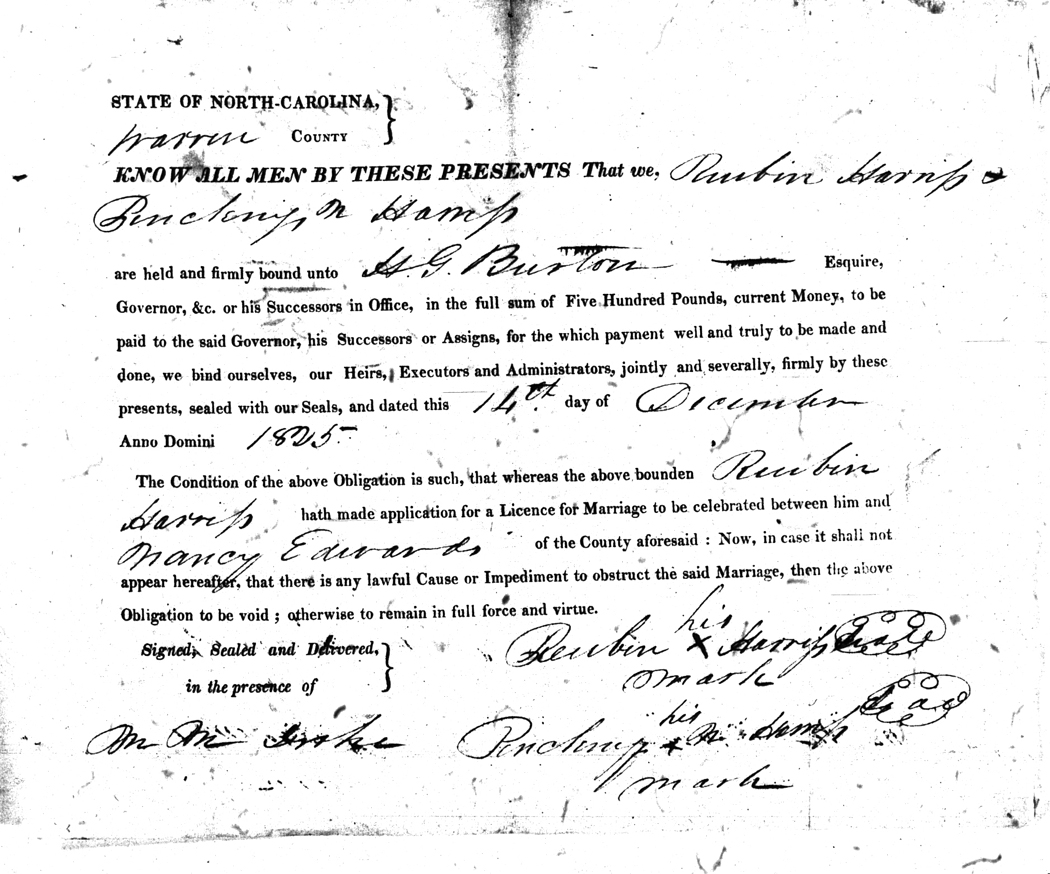 STATE OF NORTH-CAROLINA,
Warren COUNTY
KNOW ALL MEN BY THESE PRESENTS That we, Reubin Harriss &
N
are held and firmly bound unto H G. Burton Esquire,
Governor, &c. or his Successors in Office, in the full sum of Five Hundred Pounds, current Money, to be
paid to the said Governor, his Successors or Assigns, for the which payment well and truly to be made and
done, we bind ourselves, our Heirs, Executors and Administrators, jointly and severally, firmly by these
presents, sealed with our Seals, and dated this 14th. day of December
Anno Domini 1825
The Condition of the above Obligation is such, that whereas the above bounden Reubin
Harriss hath made application for a Licence for Marriage to be celebrated between him and
Nancy Edwards of the County aforesaid : Now, in case it shall not
appear hereafter, that there is any lawful Cause or Impediment to obstruct the said Marriage, then the above
Obligation to be void ; otherwise to remain in full force and virtue.
his
Signed, Sealed and Delivered, Reubin X Harriss Seal
in the presence of mark
his Seal
M M N
mark